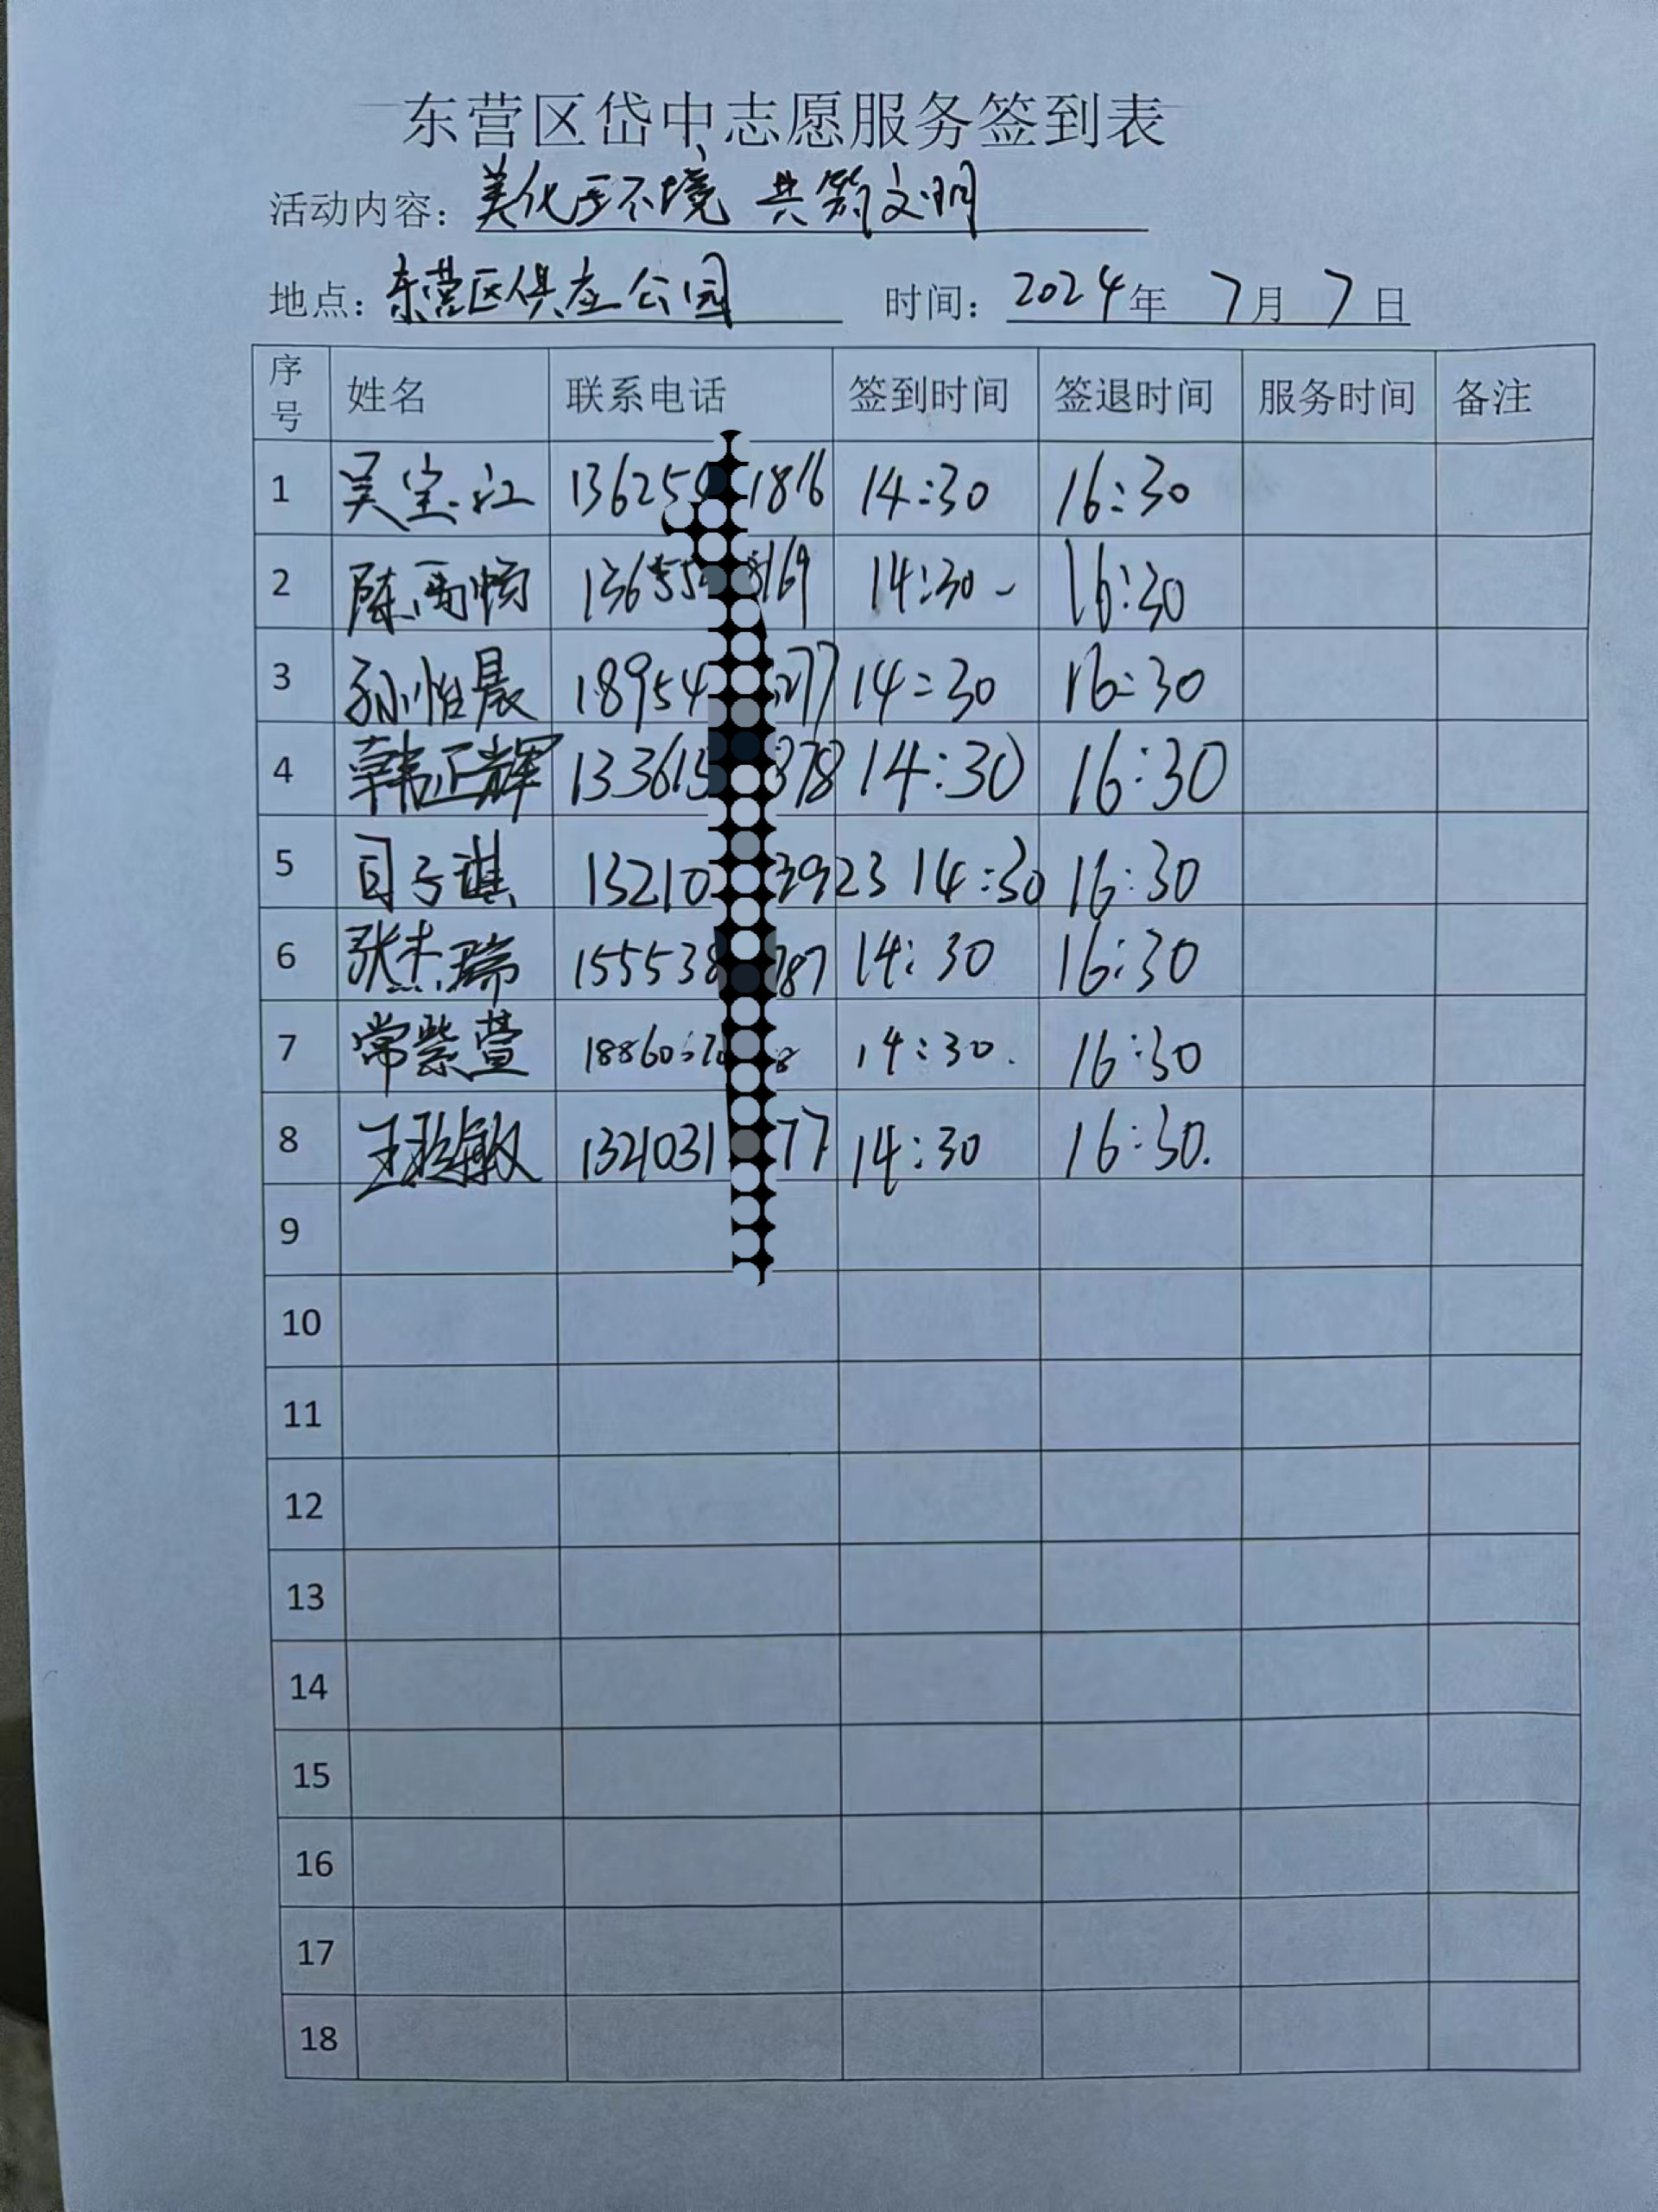 东营区岱中志愿服务签到表
活动内容：美化环境 共筑文明
地点：东营区供应公园 时间：2024年 7月 7日
序号 姓名 联系电话 签到时间 签退时间 服务时间 备注
1 吴宝江 13625 1816 14:30 16:30
2 陈雨 13655 169 14:30 16:30
3 孙怡晨 18954 277 14:30 16:30
4 韩正辉 133615 378 14:30 16:30
5 司子琪 13210 3923 14:30 16:30
6 张杰瑞 155538 787 14:30 16:30
7 常紫萱 18860 8 14:30. 16:30
8 王敏 1321031 77 14:30 16:30.
9
10
11
12
13
14
15
16
17
18